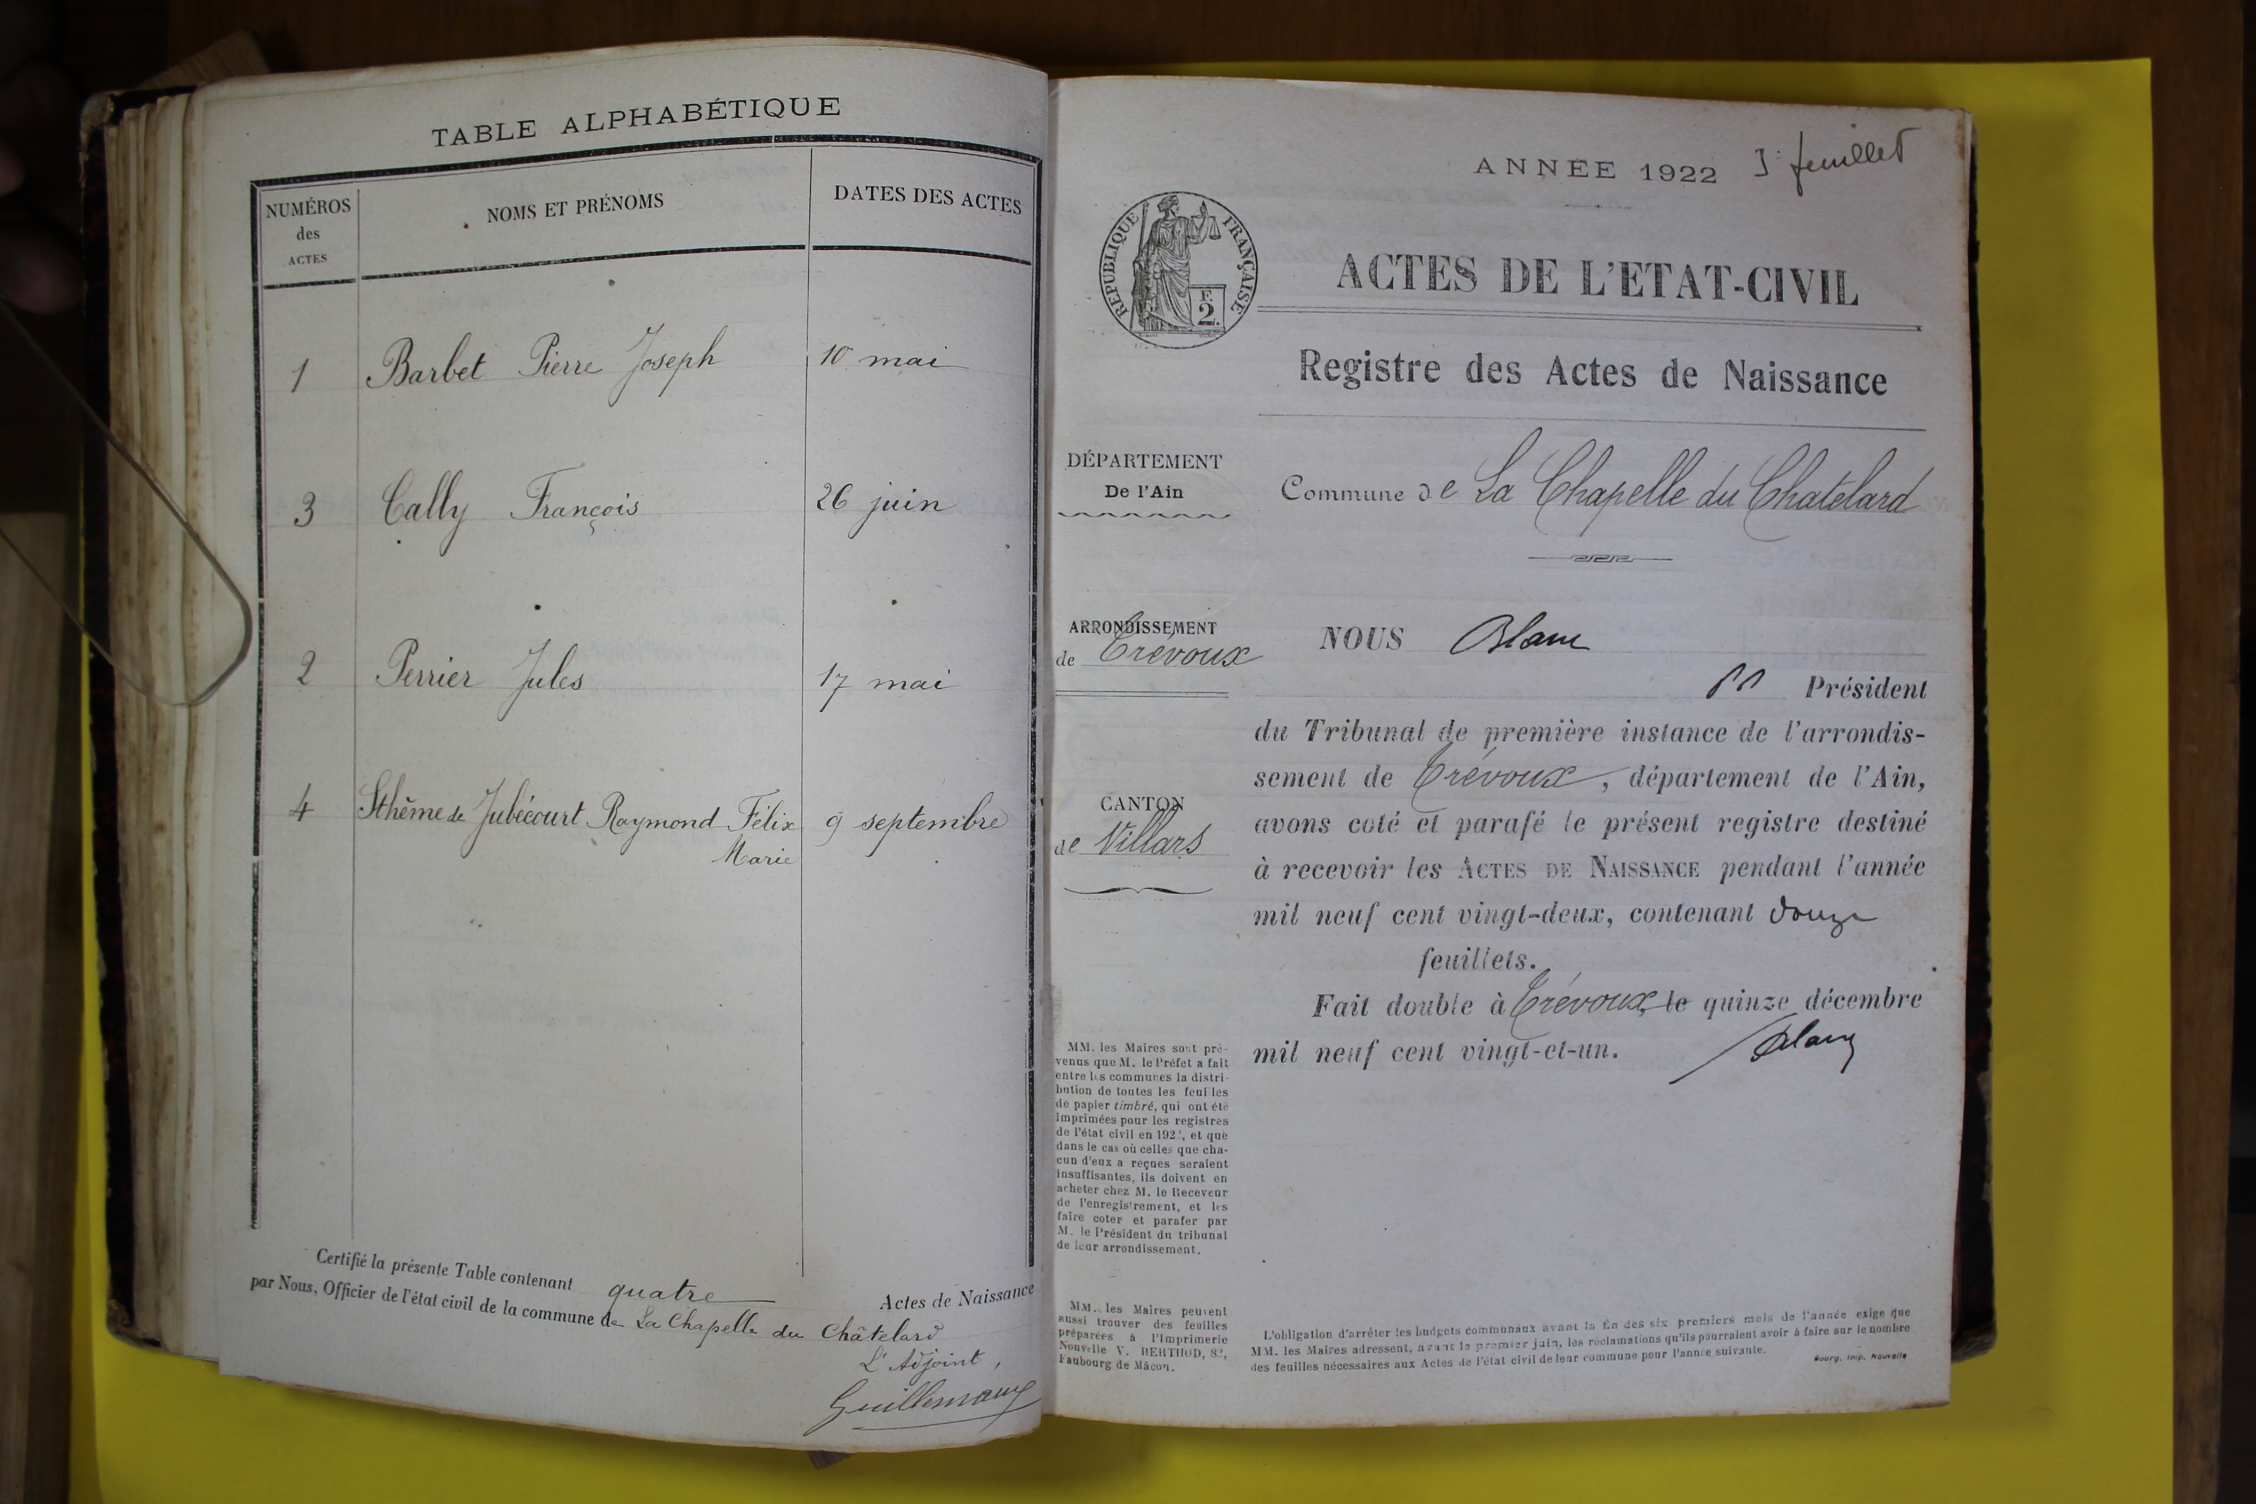 TABLE ALPHABÉTIQUE
NUMÉROS
des
ACTES
NOMS ET PRÉNOMS
DATES DES ACTES
1 Barbet Pierre Joseph 10 mai
3 Cally François 26 juin
2 Perrier Jules 17 mai
4 Sthême de Jubécourt Raymond Félix 9 septembre
Marie
Certifié la présente Table contenant quatre Actes de Naissance
par Nous, Officier de l'état civil de la commune de La Chapelle du Châtelard
L'Adjoint,
ANNÉE 1922
feuillet
RÉPUBLIQUE FRANÇAISE
F.
2.
ACTES DE L'ETAT-CIVIL
Registre des Actes de Naissance
DÉPARTEMENT
De l'Ain
Commune de La Chapelle du Chatelard
ARRONDISSEMENT
de Trévoux
CANTON
de Villars
NOUS Blanc
Président
du Tribunal de première instance de l'arrondis-
sement de Trévoux, département de l'Ain,
avons coté et parafé le présent registre destiné
à recevoir les ACTES DE NAISSANCE pendant l'année
mil neuf cent vingt-deux, contenant douze
feuillets.
Fait double à Trévoux, le quinze décembre
mil neuf cent vingt-et-un.
Blanc
MM. les Maires sont pré-
venus que M. le Préfet a fait
entre les communes la distri-
bution de toutes les feuilles
de papier timbré, qui ont été
imprimées pour les registres
de l'état civil en 192, et que
dans le cas où celles que cha-
cun d'eux a reçues seraient
insuffisantes, ils doivent en
acheter chez M. le Receveur
de l'enregistrement, et les
faire coter et parafer par
M. le Président du tribunal
de leur arrondissement.
MM. les Maires peuvent
aussi trouver des feuilles
préparées à l'Imprimerie
Nouvelle V. BERTHOD,
Faubourg de Mâcon.
L'obligation d'arrêter les budgets communaux avant la fin des six premiers mois de l'année exige que
MM. les Maires adressent, avant le premier juin, les réclamations qu'ils pourraient avoir à faire sur le nombre
des feuilles nécessaires aux Actes de l'état civil de leur commune pour l'année suivante.
Bourg, Imp. Nouvelle